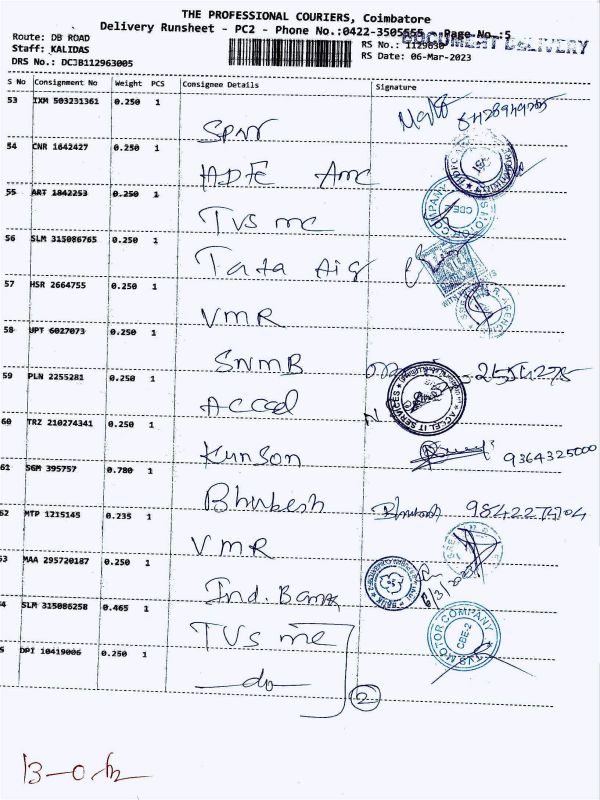 THE PROFESSIONAL COURIERS, Coimbatore
Delivery Runsheet - PC2 - Phone No.:0422-3505555 Page No.:5
DOCUMENT DELIVERY
Route: DB ROAD
Staff: KALIDAS
DRS No.: DCJB112963005
RS No.: 1129630
RS Date: 06-Mar-2023
S No Consignment No Weight PCS Consignee Details Signature
53 IXM 503231361 0.250 1
54 CNR 1642427 0.250 1
HDFC Amc
55 ART 1842253 0.250 1
TVS mc
COMPANY
56 SLM 315086765 0.250 1
Tata Aig
57 HSR 2664755 0.250 1
VMR
58 UPT 6027073 0.250 1
SNMB
59 PLN 2255281 0.250 1
Accel
ACCEL IT SERVICES
60 TRZ 210274341 0.250 1
Kunson 9364325000
61 SGM 395757 0.780 1
Bhubesh
62 MTP 1215145 0.235 1
VMR
63 MAA 295720187 0.250 1
Ind. Bank
4 SLM 315086258 0.465 1
TVS mc
TVS MOTOR COMPANY
CBE-2
5 DPI 10419006 0.250 1
do
2